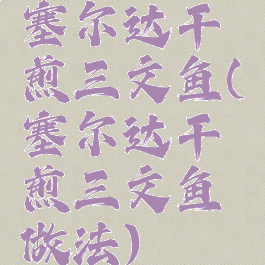 塞尔达干
煎三文鱼(
塞尔达干
煎三文鱼
做法)